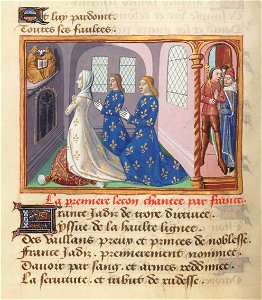 Et luy pardont
Toutes ses faultes.
La premiere lecon chantee par france
France jadis de troye
yssue de la haulte lignee
Des vaillans preux et princes de noblesse
France jadis premierement nommee
Davoir par sang et armes redimee
La servitute et tribut de rudesse.